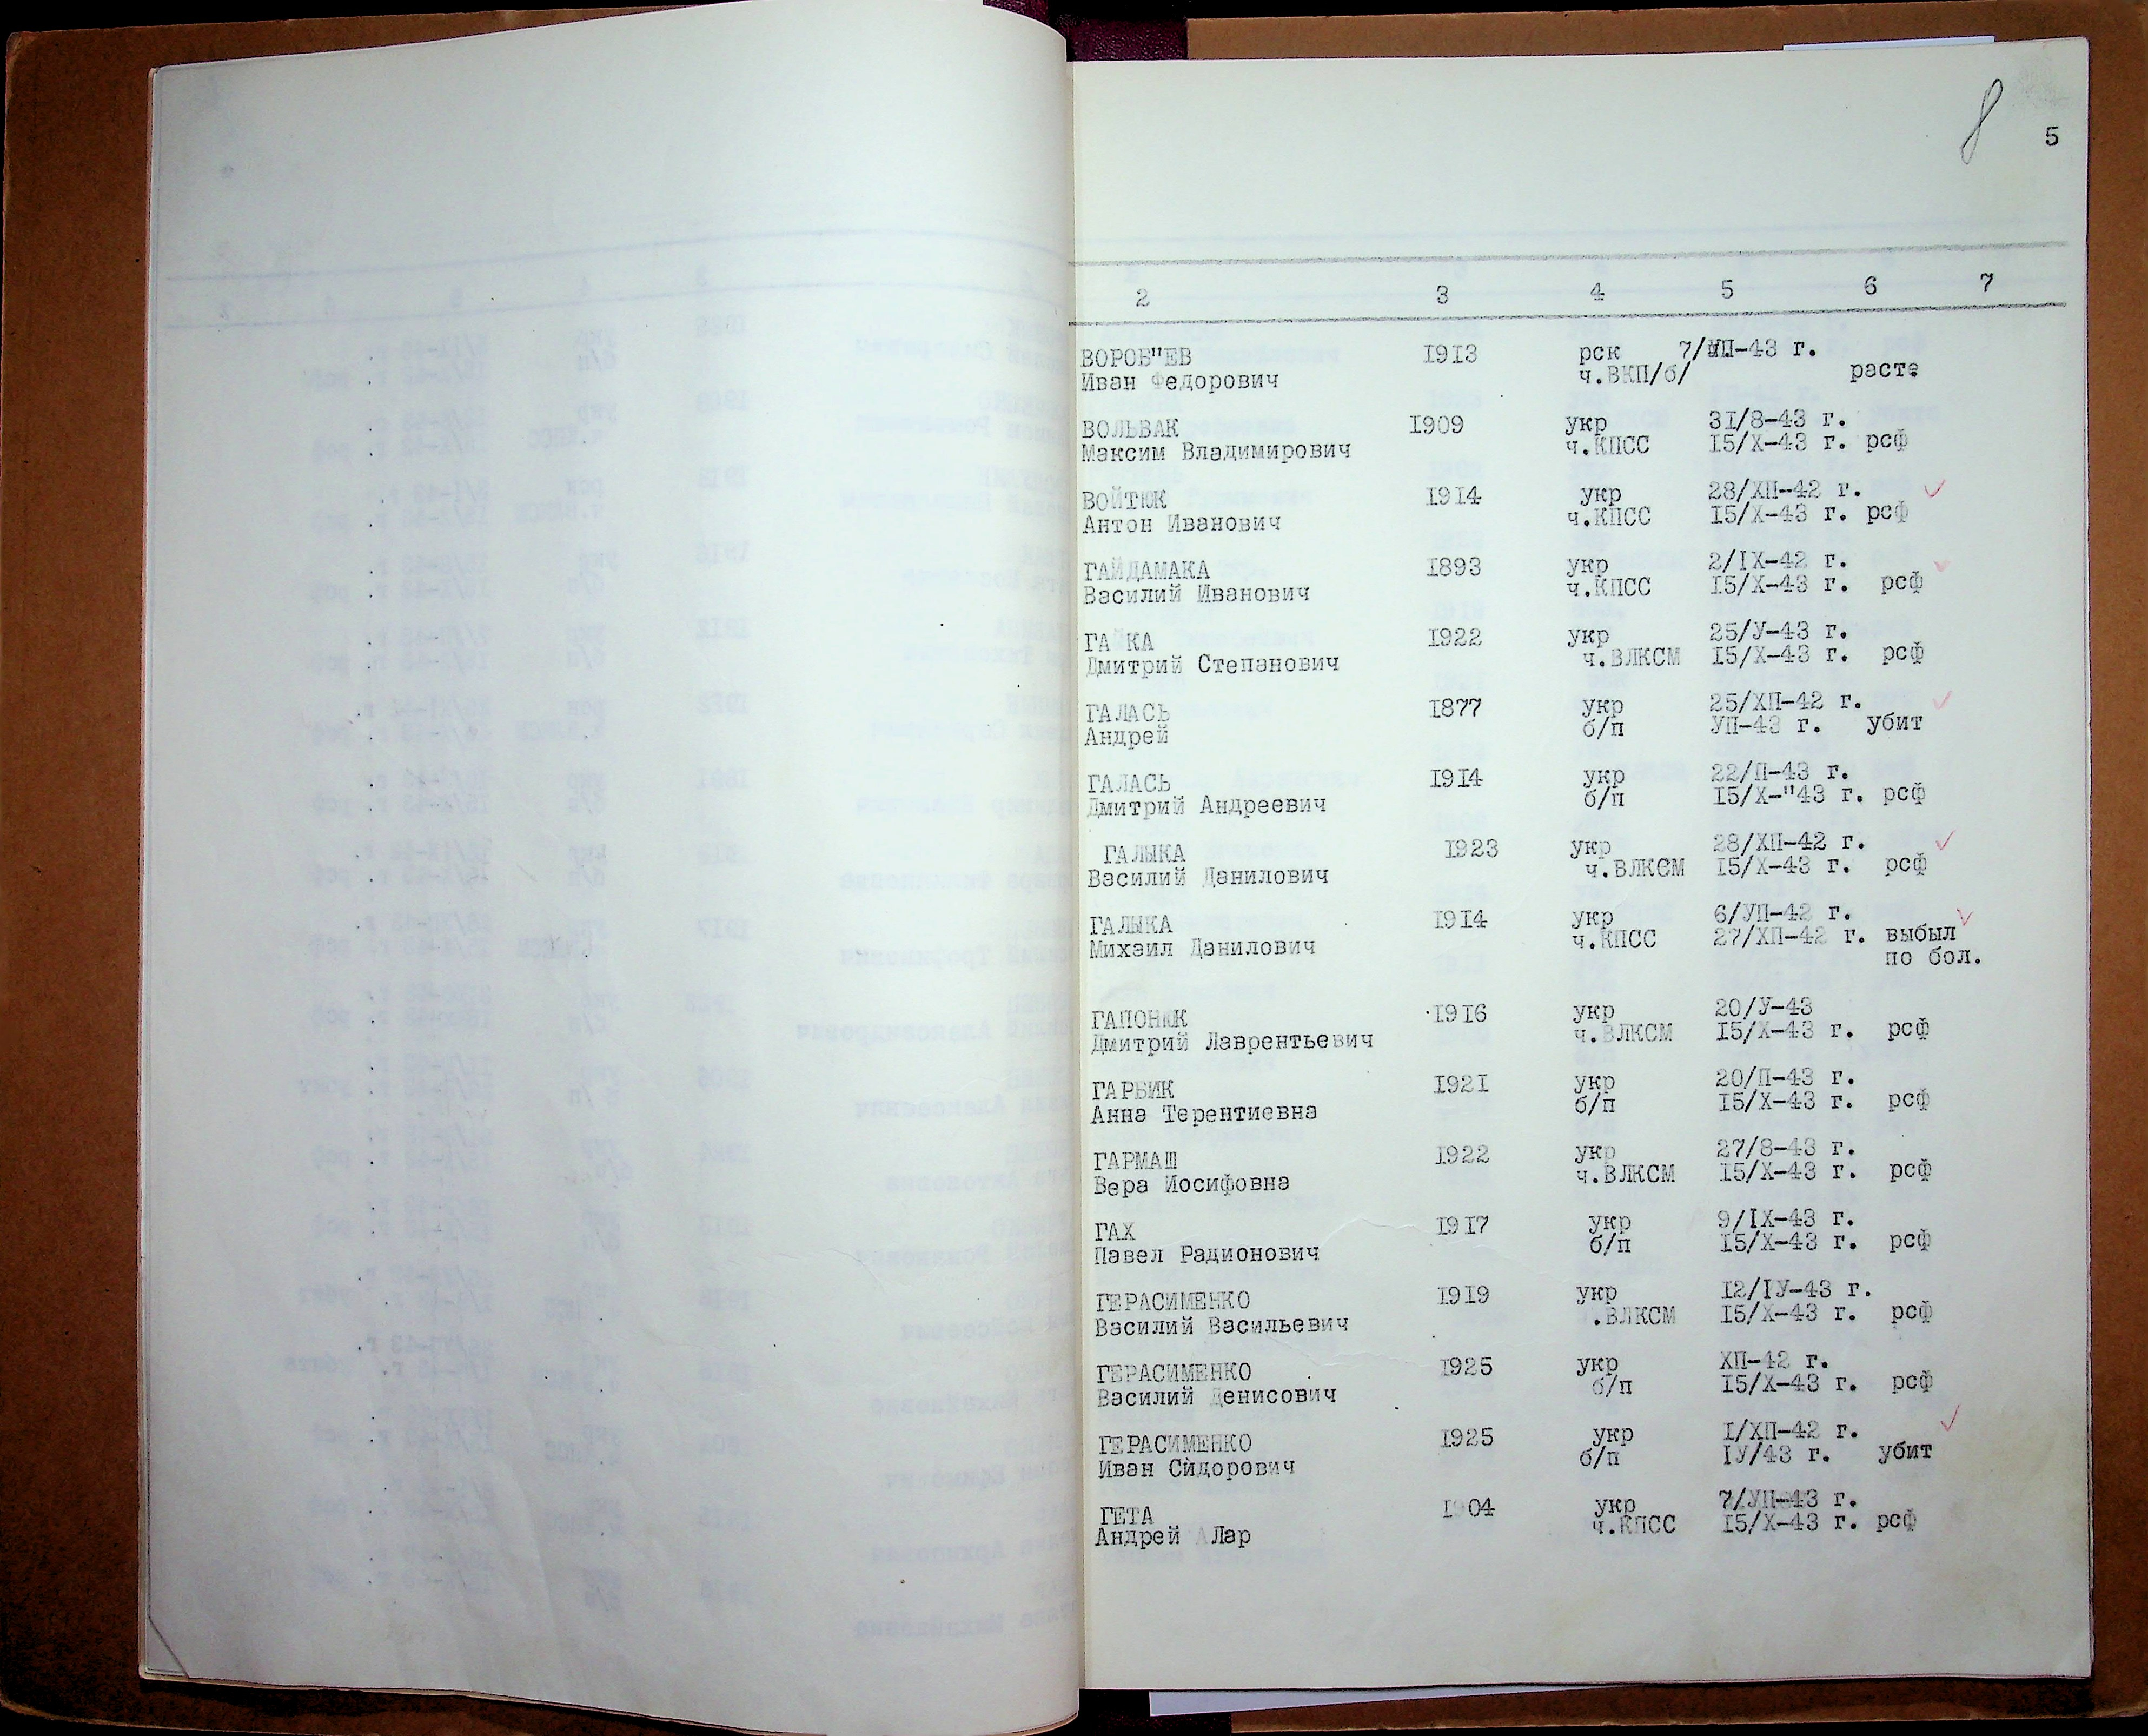 8 5
2 3 4 5 6 7
ВОРОБ"ЕВ 1913 рск 7/УП-43 г.
Иван Федорович ч.ВКП/б/ расте
ВОЛЬВАК 1909 укр 31/8-43 г.
Максим Владимирович ч.КПСС 15/Х-43 г. рсф
ВОЙТЮК 1914 укр 28/ХП-42 г.
Антон Иванович ч.КПСС 15/Х-43 г. рсф
ГАЙДАМАКА 1893 укр 2/IX-42 г.
Василий Иванович ч.КПСС 15/Х-43 г. рсф
ГАЙКА 1922 укр 25/У-43 г.
Дмитрий Степанович ч.ВЛКСМ 15/Х-43 г. рсф
ГАЛАСЬ 1877 укр 25/ХП-42 г.
Андрей б/п УП-43 г. убит
ГАЛАСЬ 1914 укр 22/П-43 г.
Дмитрий Андреевич б/п 15/Х-"43 г. рсф
ГАЛЫКА 1923 укр 28/ХП-42 г.
Василий Данилович ч.ВЛКСМ 15/Х-43 г. рсф
ГАЛЫКА 1914 укр 6/УП-42 г.
Михаил Данилович ч.КПСС 27/ХП-42 г. выбыл
по бол.
1916 укр 20/У-43
Дмитрий Лаврентьевич ч.ВЛКСМ 15/Х-43 г. рсф
ГАРБИК 1921 укр 20/П-43 г.
Анна Терентиевна б/п 15/Х-43 г. рсф
ГАРМАШ 1922 укр 27/8-43 г.
Вера Иосифовна ч.ВЛКСМ 15/Х-43 г. рсф
ГАХ 1917 укр 9/IX-43 г.
Павел Радионович б/п 15/Х-43 г. рсф
ГЕРАСИМЕНКО 1919 укр 12/IУ-43 г.
Василий Васильевич .ВЛКСМ 15/Х-43 г. рсф
ГЕРАСИМЕНКО 1925 укр ХП-42 г.
Василий Денисович б/п 15/Х-43 г. рсф
ГЕРАСИМЕНКО 1925 укр I/ХП-42 г.
Иван Сидорович б/п IУ/43 г. убит
ГЕТА 1904 укр 7/УП-43 г.
Андрей А Лар ч.КПСС 15/Х-43 г. рсф